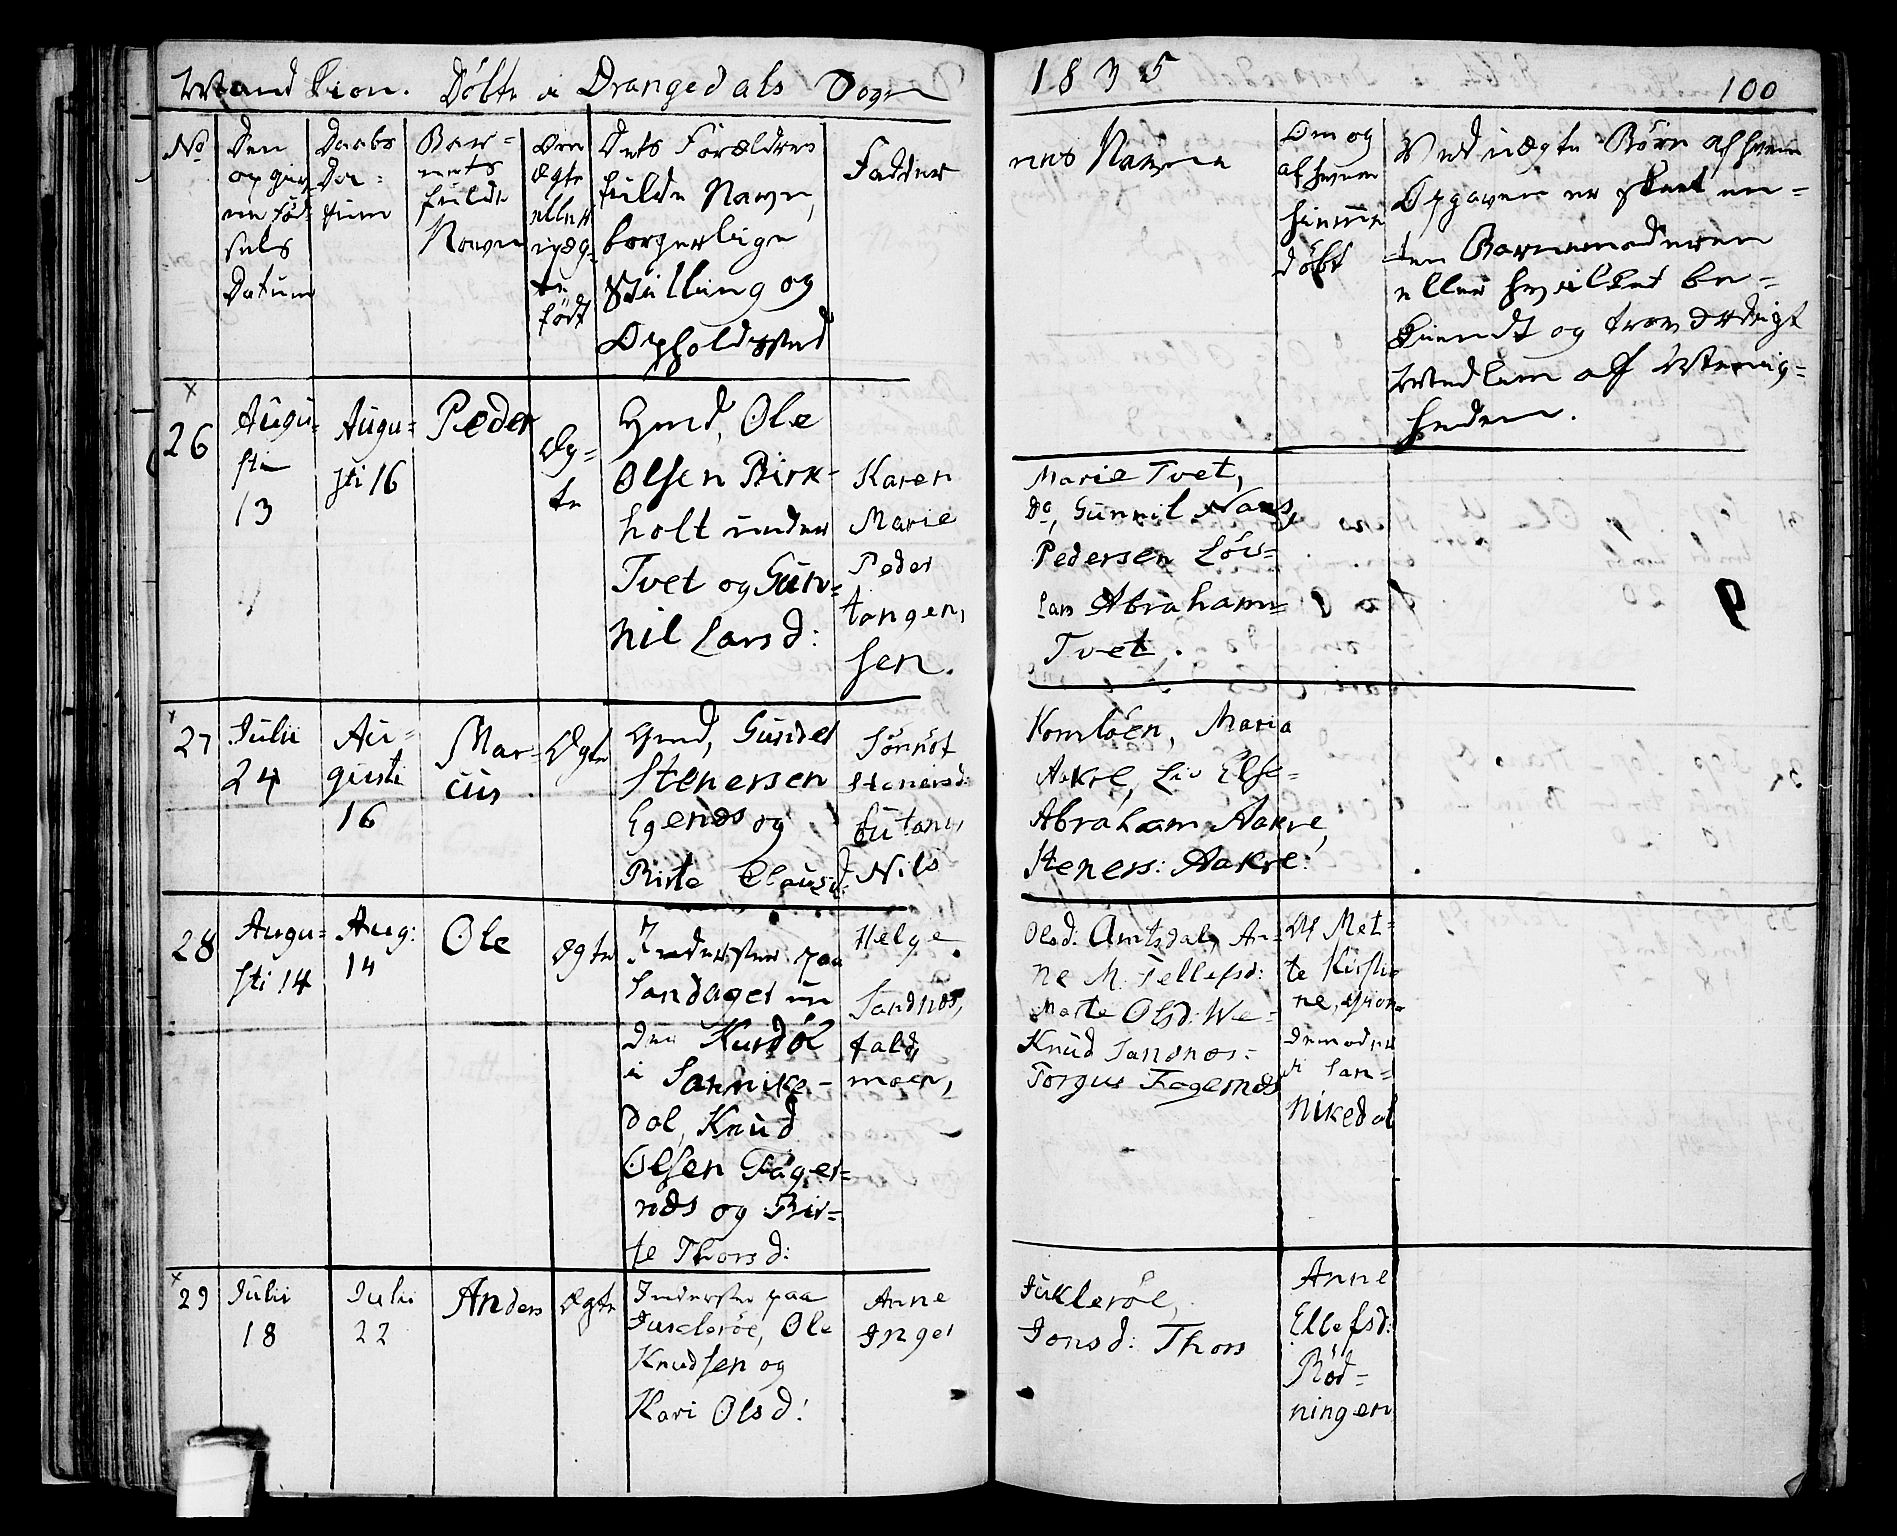 Mand Kion. Døbte i Drangedals Sogn
1835
100
No
Den
opgiv
ne Fød
sels
Datum
Daabs
Da-
tum
Bar-
nets
fulde
Navn
Om
ægte
eller
uæg-
te
født
Dets Forældres
fulde Navn,
borgerlige
Stilling og
Opholdssted
Fadder
nes Navne
Om og
af hvem
hiemme
døbt
Ved uægte Børn af hvem
Opgaven er skeet en-
ten Barnemoderen
eller hvilket be-
kiendt og troværdigt
Medlem af Menig-
heden.
26
Augu-
sti
13
Augu-
sti 16
Peder
Æg-
te
Gmd, Ole
Olsen Birk-
holt under
Tvet og Gun-
nil Larsd:
Karen
Marie
Peder
tangen,
sen.
Marie Tvet,
Do, Gunnil Næs,
Pedersen Löv-
Lars Abraham-
Tvet.
9
27
Julii
24
Au-
gusti
16
Mar-
cus
Ægte
Gmd, Gunder
Stenersen
Egenæs og
Birte Clausd:
Sönnöt
Stenersd:
Lutane,
Nils
Komlöen, Maria
Aakre, Liv Else-
Abraham Aakre,
Steners: Aakre.
28
Augu-
sti 14
Aug:
14
Ole
Ægte
Inderster paa
Sandager un
der Kurdöl
i Sannike-
dal, Knud
Olsen Fager-
næs og Bir-
te Thorsd:
Helge
Sandnæs,
fald,
moen,
Olsd. Amtsdal, An-
ne M. Tellefsd:
Marte Olsd: We-
Knud Sandnæs-
Torgus Fagernæs
Af Met-
te Kirsti-
ne, Gior-
demoder
i San-
nikedal
29
Julii
18
Julii
22
Anders
Ægte
Inderster paa
Juscleröe, Ole
Knudsen og
Kari Olsd:
Anne
Inger
Jukleröe,
Jonsd: Thors
Anne
Ellefsd:
Röd-
ningen